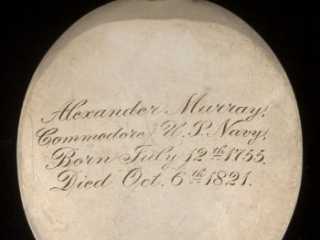 Alexander Murray.
Commodore U.S. Navy,
Born July 12th 1755.
Died Oct. 6th 1821.